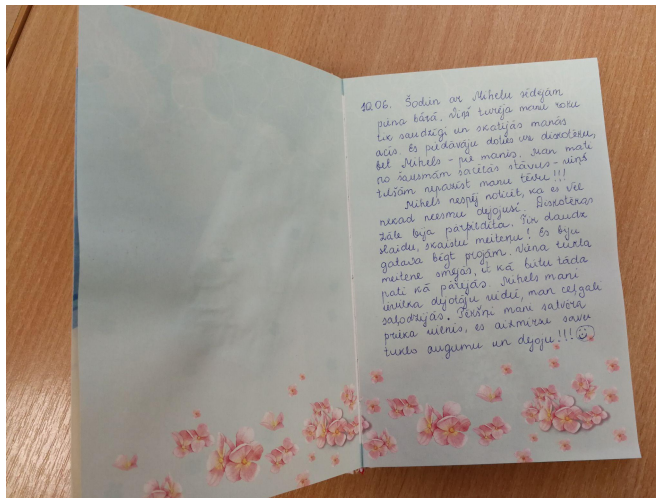 10.06. Šodien ar Mihelu sēdējām
piena bārā. Viņš turēja manu roku
tik saudzīgi un skatījās manās
acīs. Es piedāvāju doties uz diskotēku,
bet Mihels - pie manis. Man mati
no šausmām sacēlās stāvus - viņš
tiešām nepazīst manu tēvu!!!
Mihels nespēj noticēt, ka es vēl
nekad neesmu dejojusi. Diskotēkas
zāle bija pārpildīta. Tik daudz
slaidu, skaistu meiteņu! Es biju
gatava bēgt projām. Viena tukla
meitene smējās, it kā būtu tāda
pati kā pārējās. Mihels mani
ievilka dejotāju vidū, man ceļgali
saļodzījās. Pēkšņi mani satvēra
prieka vilnis, es aizmirsu savu
tuklo augumu un dejoju!!!